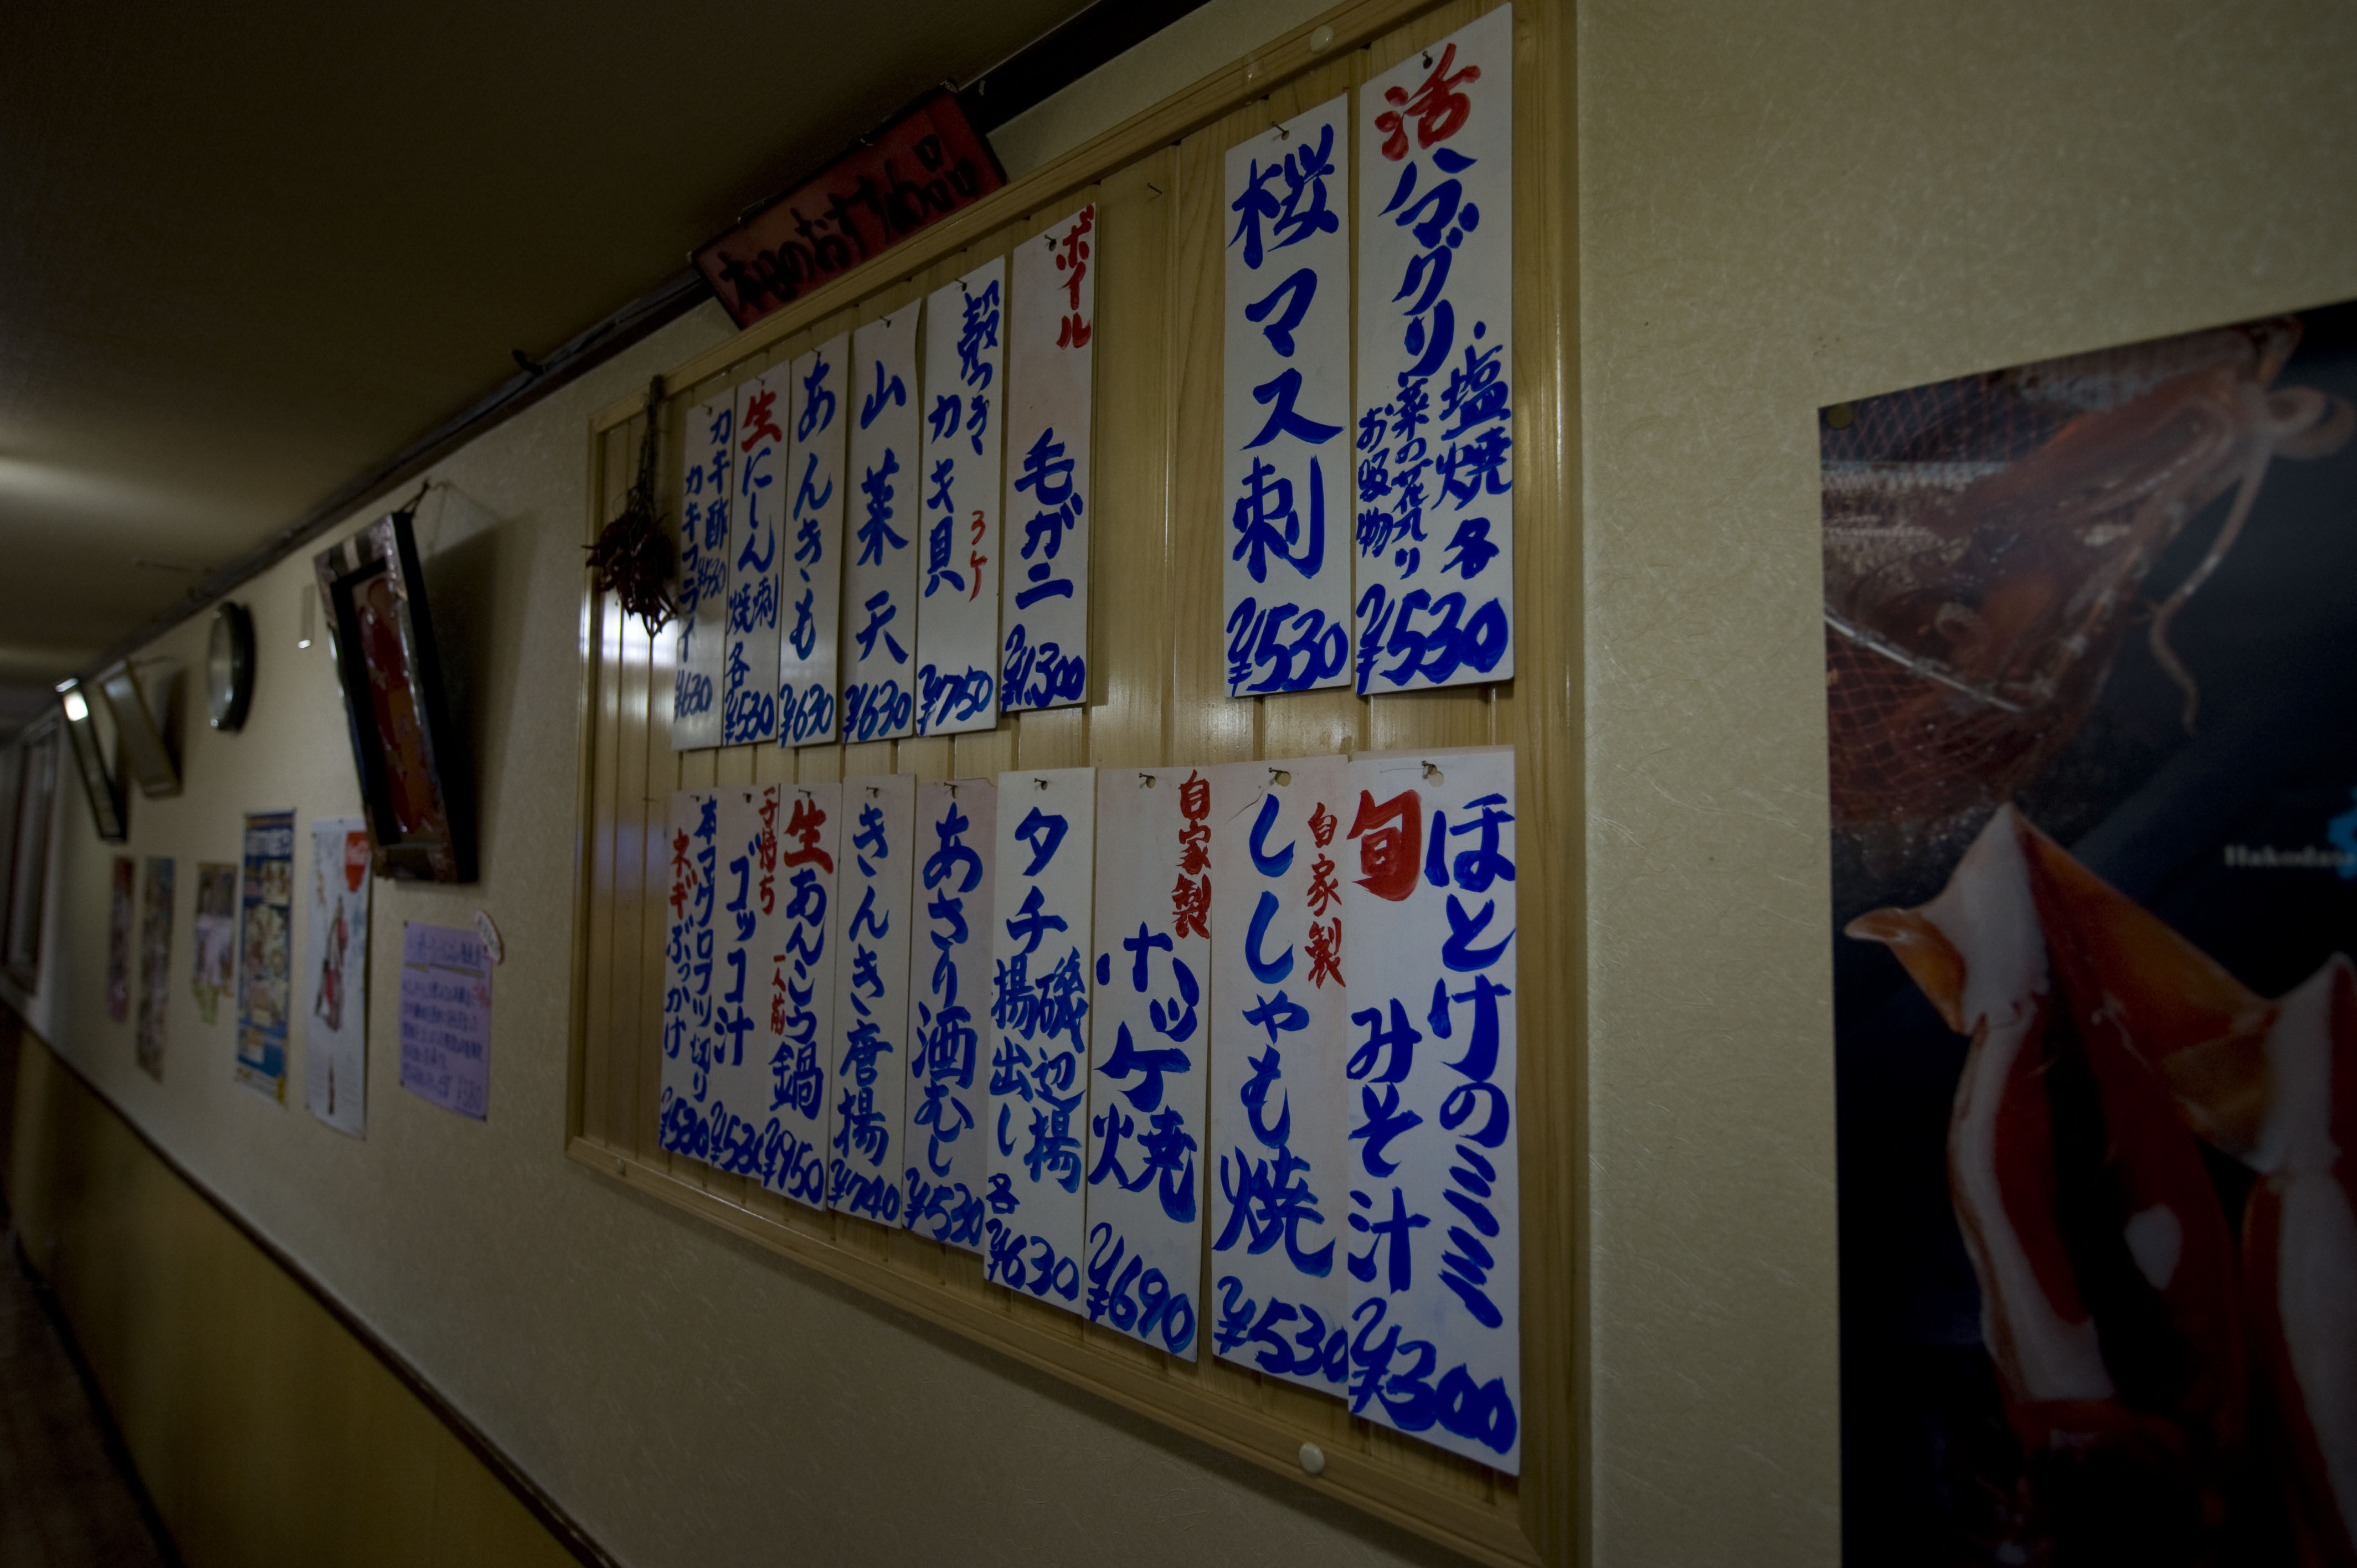 本日のおすすめ品
活ハマグリ
・塩焼
菜の花入り
お吸物
各
¥530
桜マス刺
¥530
ボイル
毛ガニ
¥1,300
殻つき
カキ貝
3ケ
¥750
山菜天
¥630
あんきも
¥630
生にしん
刺
焼
各
¥530
カキ酢
¥530
カキフライ
¥630
旬
ほとけのミミ
みそ汁
¥300
自家製
ししゃも焼
¥530
自家製
ホッケ焼
¥690
タチ
磯辺揚
揚出し
各
¥630
あさり酒むし
¥530
きんき唐揚
¥740
生あんこう鍋
一人前
¥950
子持ち
ゴッコ汁
¥530
本マグロブツ切り
ネギぶっかけ
¥530